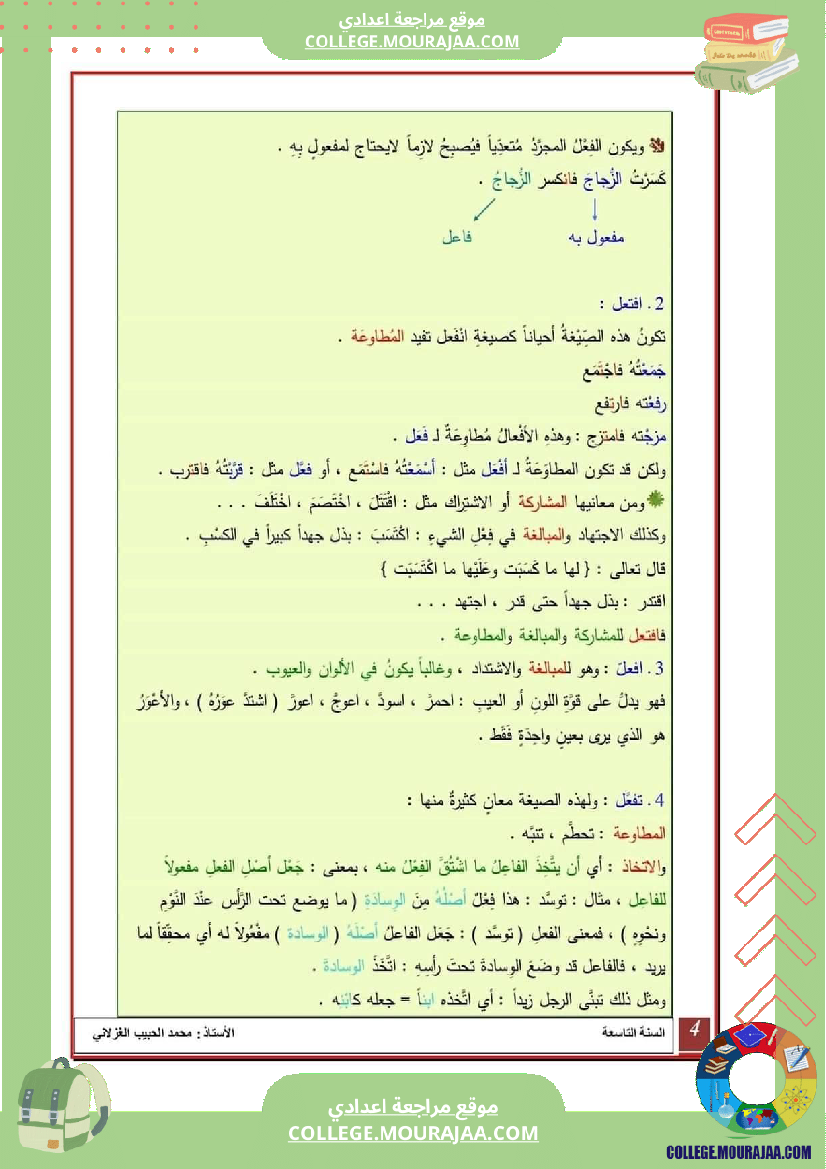 موقع مراجعة اعدادي
COLLEGE.MOURAJAA.COM
ويكون الفِعْلُ المجرَّدُ مُتعدِّياً فيُصبحُ لازِماً لايحتاج لمفعولٍ بِهِ .
كَسَرْتُ الزُّجاجَ فانكسر الزُّجاجُ .
مفعول به فاعل
2. افتعل :
تكونُ هذه الصِّيْغةُ أحياناً كصيغةِ انْفَعل تفيد المُطاوعَة .
جَمَعْتُهُ فاجْتَمَع
رفعْته فارتفع
مزجْته فامتزج : وهذهِ الأفْعالُ مُطاوِعَةٌ لـ فَعَل .
ولكن قد تكون المطاوَعَةُ لـ أفْعَل مثل : أسْمَعْتُهُ فاسْتَمَع ، أو فعَّل مثل : قرَّبْتُهُ فاقترب .
ومن معانيها المشاركة أو الاشتِراك مثل : اقْتَتَلَ ، اخْتَصَمَ ، اخْتَلَفَ . . .
وكذلك الاجتهاد والمبالغة في فِعْلِ الشيءِ : اكْتَسَبَ : بذل جهداً كبيراً في الكسْبِ .
قال تعالى : { لها ما كَسَبَت وعَلَيْها ما اكْتَسَبَت }
اقتدر : بذل جهداً حتى قدر ، اجتهد . . .
فافتعل للمشاركة والمبالغة والمطاوعة .
3. افعلّ : وهو للمبالغة والاشتداد ، وغالباً يكونُ في الألوان والعيوب .
فهو يدلُّ على قوَّةِ اللونِ أو العيبِ : احمرَّ ، اسودَّ ، اعوجَّ ، اعورَّ ( اشتدَّ عوَرُهُ ) ، والأعْوَرُ
هو الذي يرى بعينٍ واحِدَةٍ فَقَط .
4. تفعَّل : ولهذه الصيغة معانٍ كثيرةٌ منها :
المطاوعة : تحطَّم ، تنبَّه .
والاتخاذ : أي أن يتَّخِذَ الفاعِلُ ما اشْتُقَّ الفِعْلُ منه ، بمعنى : جَعْل أصْلِ الفعلِ مفعولاً
للفاعِل ، مثال : توسَّد : هذا فِعْلٌ أصْلُهُ مِنَ الوِسادَةِ ( ما يوضع تحت الرَّأس عنْدَ النَّوْمِ
ونحْوِهِ ) ، فمعنى الفعلِ ( توسَّد ) : جَعَل الفاعلُ أصْلَهُ ( الوسادة ) مفْعُولاً له أي محقِّقاً لما
يريد ، فالفاعل قد وضَعَ الوِسادةَ تحتَ رأسِهِ : اتَّخَذَ الوسادةَ .
ومثل ذلك تبنَّى الرجل زيداً : أي اتَّخذه ابناً = جعله كابْنِه .
4 السنة التاسعة الأستاذ : محمد الحبيب الغزلاني
موقع مراجعة اعدادي
COLLEGE.MOURAJAA.COM
COLLEGE.MOURAJAA.COM